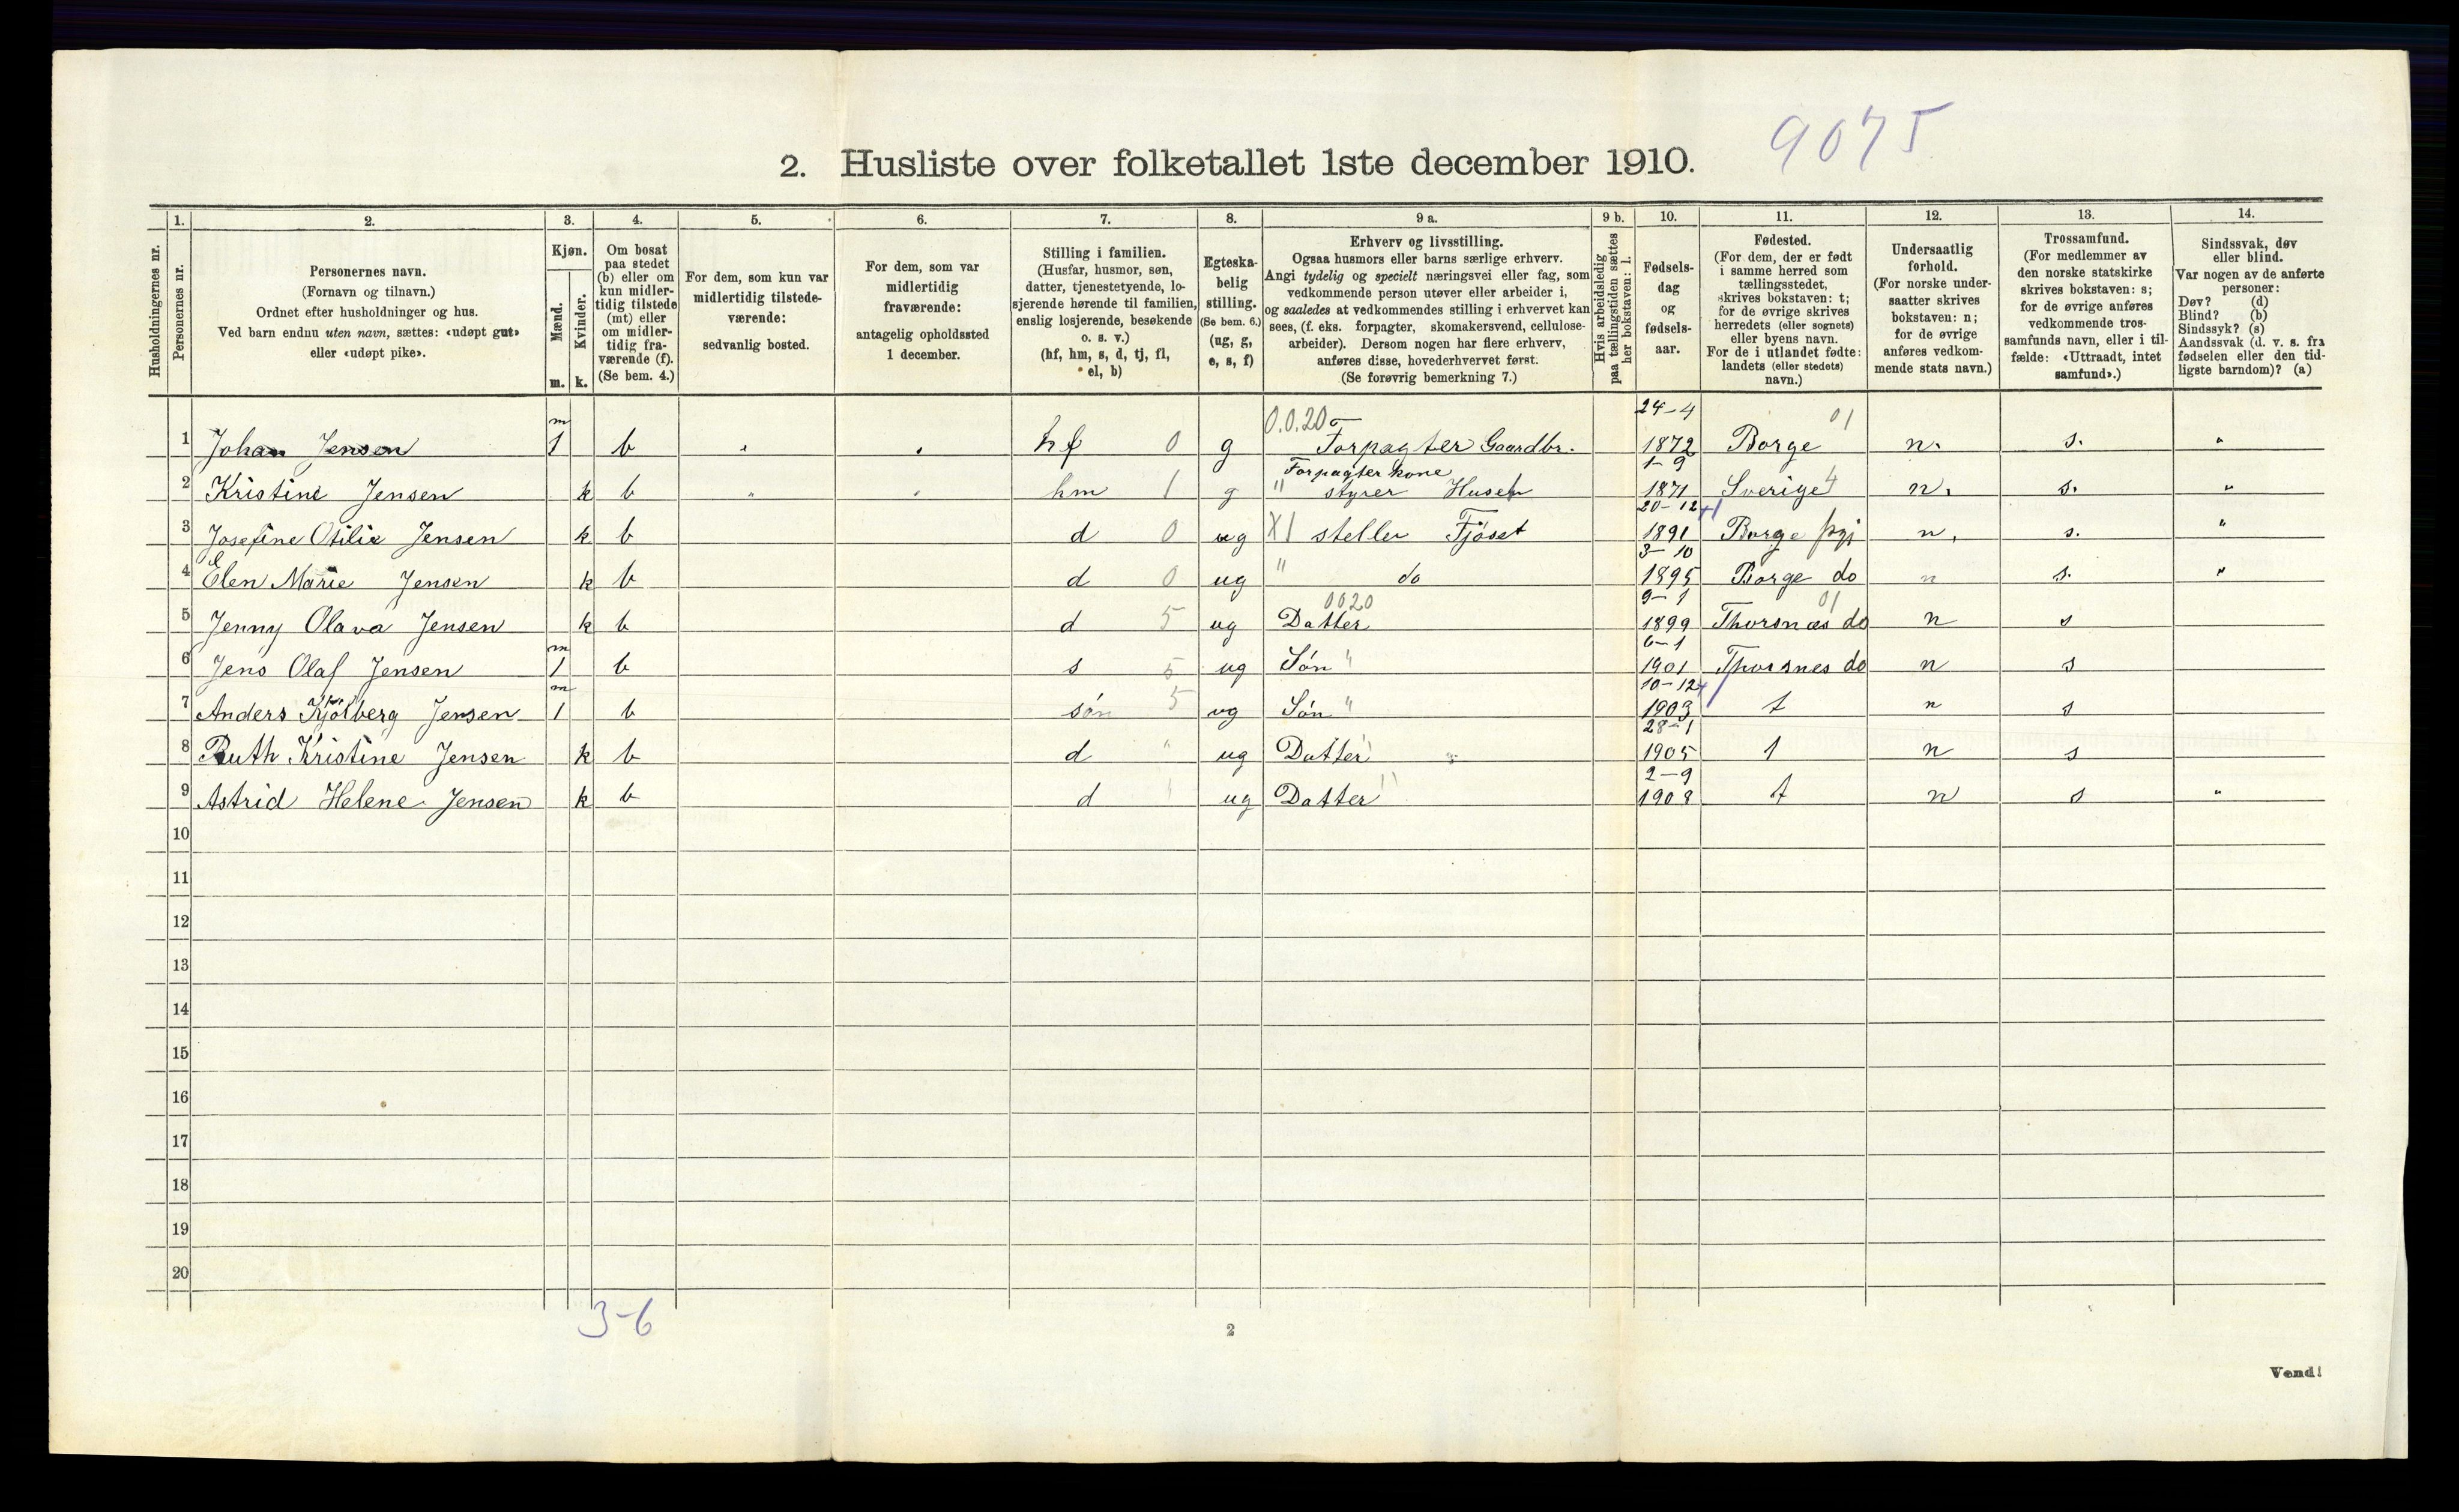 9075
2. Husliste over folketallet 1ste december 1910.
Husholdningernes nr.
1.
Personernes nr.
2.
Personernes navn.
(Fornavn og tilnavn.)
Ordnet efter husholdninger og hus.
Ved barn endnu uten navn, sættes: «udøpt gut»
eller «udøpt pike».
3.
Kjøn.
Mænd.
Kvinder.
m. k.
4.
Om bosat
paa stedet
(b) eller om
kun midler-
tidig tilstede
(mt) eller
om midler-
tidig fra-
værende (f).
(Se bem. 4.)
5.
For dem, som kun var
midlertidig tilstede-
værende:
sedvanlig bosted.
6.
For dem, som var
midlertidig
fraværende:
antagelig opholdssted
1 december.
7.
Stilling i familien.
(Husfar, husmor, søn,
datter, tjenestetyende, lo-
sjerende hørende til familien,
enslig losjerende, besøkende
o. s. v.)
(hf, hm, s, d, tj, fl,
el, b)
8.
Egteska-
belig
stilling.
(Se bem. 6.)
(ug, g,
e, s, f)
9 a.
Erhverv og livsstilling.
Ogsaa husmors eller barns særlige erhverv.
Angi tydelig og specielt næringsvei eller fag, som
vedkommende person utøver eller arbeider i,
og saaledes at vedkommendes stilling i erhvervet kan
sees, (f. eks. forpagter, skomakersvend, cellulose-
arbeider). Dersom nogen har flere erhverv,
anføres disse, hovederhvervet først.
(Se forøvrig bemerkning 7.)
9 b.
Hvis arbeidsledig
paa tællingstiden sættes
her bokstaven: l.
10.
Fødsels-
dag
og
fødsels-
aar.
11.
Fødested.
(For dem, der er født
i samme herred som
tællingsstedet,
skrives bokstaven: t;
for de øvrige skrives
herredets (eller sognets)
eller byens navn.
For de i utlandet fødte:
landets (eller stedets)
navn.)
12.
Undersaatlig
forhold.
(For norske under-
saatter skrives
bokstaven: n;
for de øvrige
anføres vedkom-
mende stats navn.)
13.
Trossamfund.
(For medlemmer av
den norske statskirke
skrives bokstaven: s;
for de øvrige anføres
vedkommende tros-
samfunds navn, eller i til-
fælde: «Uttraadt, intet
samfund».)
14.
Sindssvak, døv
eller blind.
Var nogen av de anførte
personer:
Døv? (d)
Blind? (b)
Sindssyk? (s)
Aandssvak (d. v. s. fra
fødselen eller den tid-
ligste barndom)? (a)
m 0.0.20 24-4 01
1 Johan Jensen 1 b hf 0 g Forpagter Gaardbr. 1872 Borge n. s. "
Forpagter kone 1-9
2 Kristine Jensen k b hm 1 g " styrer Huset 1871 Sverige 4 n. s. "
20-12
3 Josefine Otilie Jensen k b d 0 ug X1 steller Fjöset 1891 Borge n. s. "
3-10
4 Elen Marie Jensen k b d 0 ug " do 1895 Borge do n s. "
0020 9-1 01
5 Jenny Olava Jensen k b d 5 ug Datter 1899 Thorsnæs do n s
m 6-1
6 Jens Olaf Jensen 1 b s 5 ug Són " 1901 Thorsnes do n s
m 10-12
7 Anders Kjölberg Jensen 1 b són 5 ug Són " 1903 t n s
28-1
8 Ruth Kristine Jensen k b d " ug Datter 1905 t n s
2-9
9 Astrid Helene Jensen k b d ug Datter 1908 t n s "
10
11
12
13
14
15
16
17
18
19
20
3-6
2
Vend!